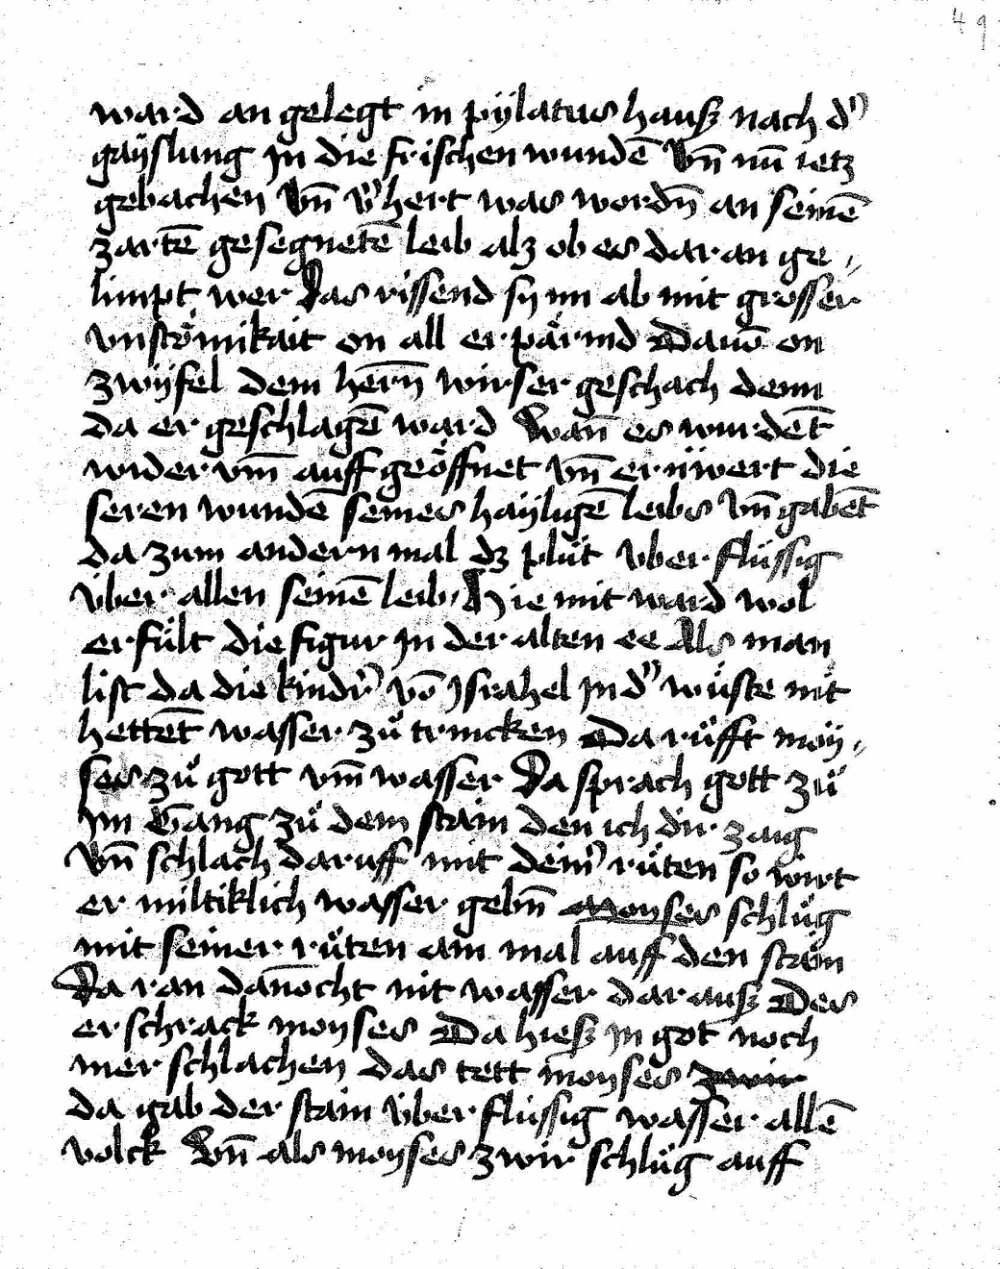 49
ward an gelegt in pÿlatus hauß nach d'
gaÿslung jn die frischen wundē Vn̄ nū ietz
gebachen Vn̄ v'hert was wordn̄ an seinē
zartē gesegnetē leib alz ob es dar an ge„
limpt wer Das rissend sy im ab mit grosser
vnströmikait on all erpärmd Dauō on
zwÿfel dem hern̄ wirser geschach denn
da er geschlagē ward Wan̄ es wurdēt
wider vm̄ auff geöffnet vn̄ ernüwert die
seren wundē seines haÿligē leibs Vn̄ gabēt
da zum andern mal dz plůt vber flüssig
über allen seinē leib Hie mit ward wol
erfült die figur jn der alten ee Als man
list da die kindr' vō jsrahel jn d' wůste nit
hettēt wasser zů trincken Da růfft moÿ„
ses zů gott vm̄ wasser Da sprach gott zů
jm Gang zů dem stain den ich dir zaig
Vn̄ schlach daruff mit deim' růten so wirt
er miltiklich wasser gebn̄ Moyses schlůg
mit seiner růten ain mal auff den stain
Da ran dan̄ocht nit wasser dar auß Des
erschrack moyses Da hieß jn got noch
mer schlachen das tett moyses zwir
da gab der stain über flüssig wasser allē
volck Vn̄ als moyses zwir schlůg auff